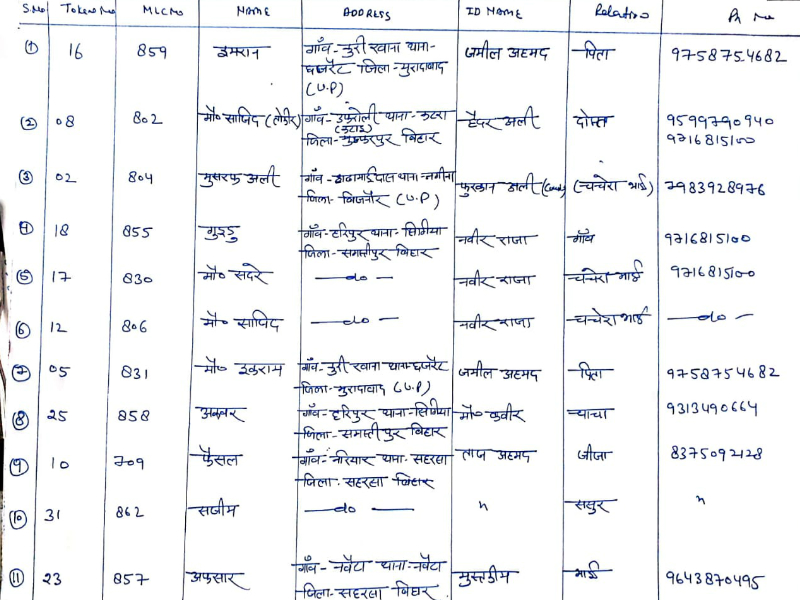 S.No Token No MLC No NAME ADDRESS ID NAME Relation Ph No
① 16 859 इमरान गाँव-नुरी खाना थाना- जमील अहमद पिता 9758754682
छजरैट जिला-मुरादाबाद
(U.P)
② 08 802 मौ० साजिद गाँव- थाना-कटरा हैदर अली दोस्त 9599790940
(कटाई)
जिला-मुजफ्फरपुर बिहार 9716815100
③ 02 804 मुसरफ अली थाना-नगीना फुरकान अली (चचेरा भाई) 7983928976
जिला-बिजनौर (U.P)
④ 18 855 गुड्डु गाँव-हरिपुर थाना-सिंगिया नवीर राजा गाँव 9716815100
जिला-समस्तीपुर बिहार
⑤ 17 830 मौ० सदरे —do— नवीर राजा चचेरा भाई 9716815100
⑥ 12 806 मौ० साजिद —do— नवीर राजा चचेरा भाई —do—
⑦ 05 831 मौ० इकराम गाँव-नुरी खाना थाना-छजरैट जमील अहमद पिता 9758754682
जिला-मुरादाबाद (U.P)
⑧ 25 858 अकबर गाँव-हरिपुर थाना-सिंगिया मौ० कबीर चाचा 9313490664
जिला-समस्तीपुर बिहार
⑨ 10 709 फैसल गाँव-नरियार थाना-सहरसा ताज अहमद जीजा 8375092128
जिला-सहरसा बिहार
⑩ 31 862 सजीम —do— " ससुर "
⑪ 23 857 अफसार गाँव-नवैटा थाना-नवैटा मुस्तकीम भाई 9643870495
जिला-सहरसा बिहार